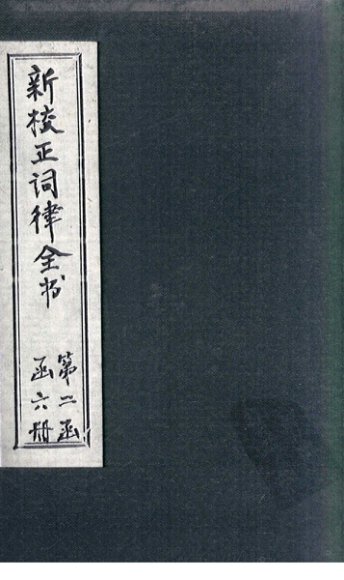 新校正词律全书
第二函
函六册